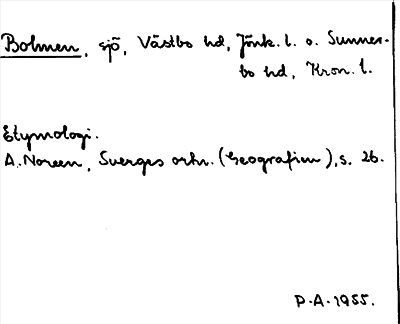 Bolmen, sjö, Västbo hd, Jönk. l. o. Sunner-
bo hd, Kron. l.
Etymologi.
A. Noreen, Sveriges ortn. (Geografien), s. 26.
P.A. 1955.